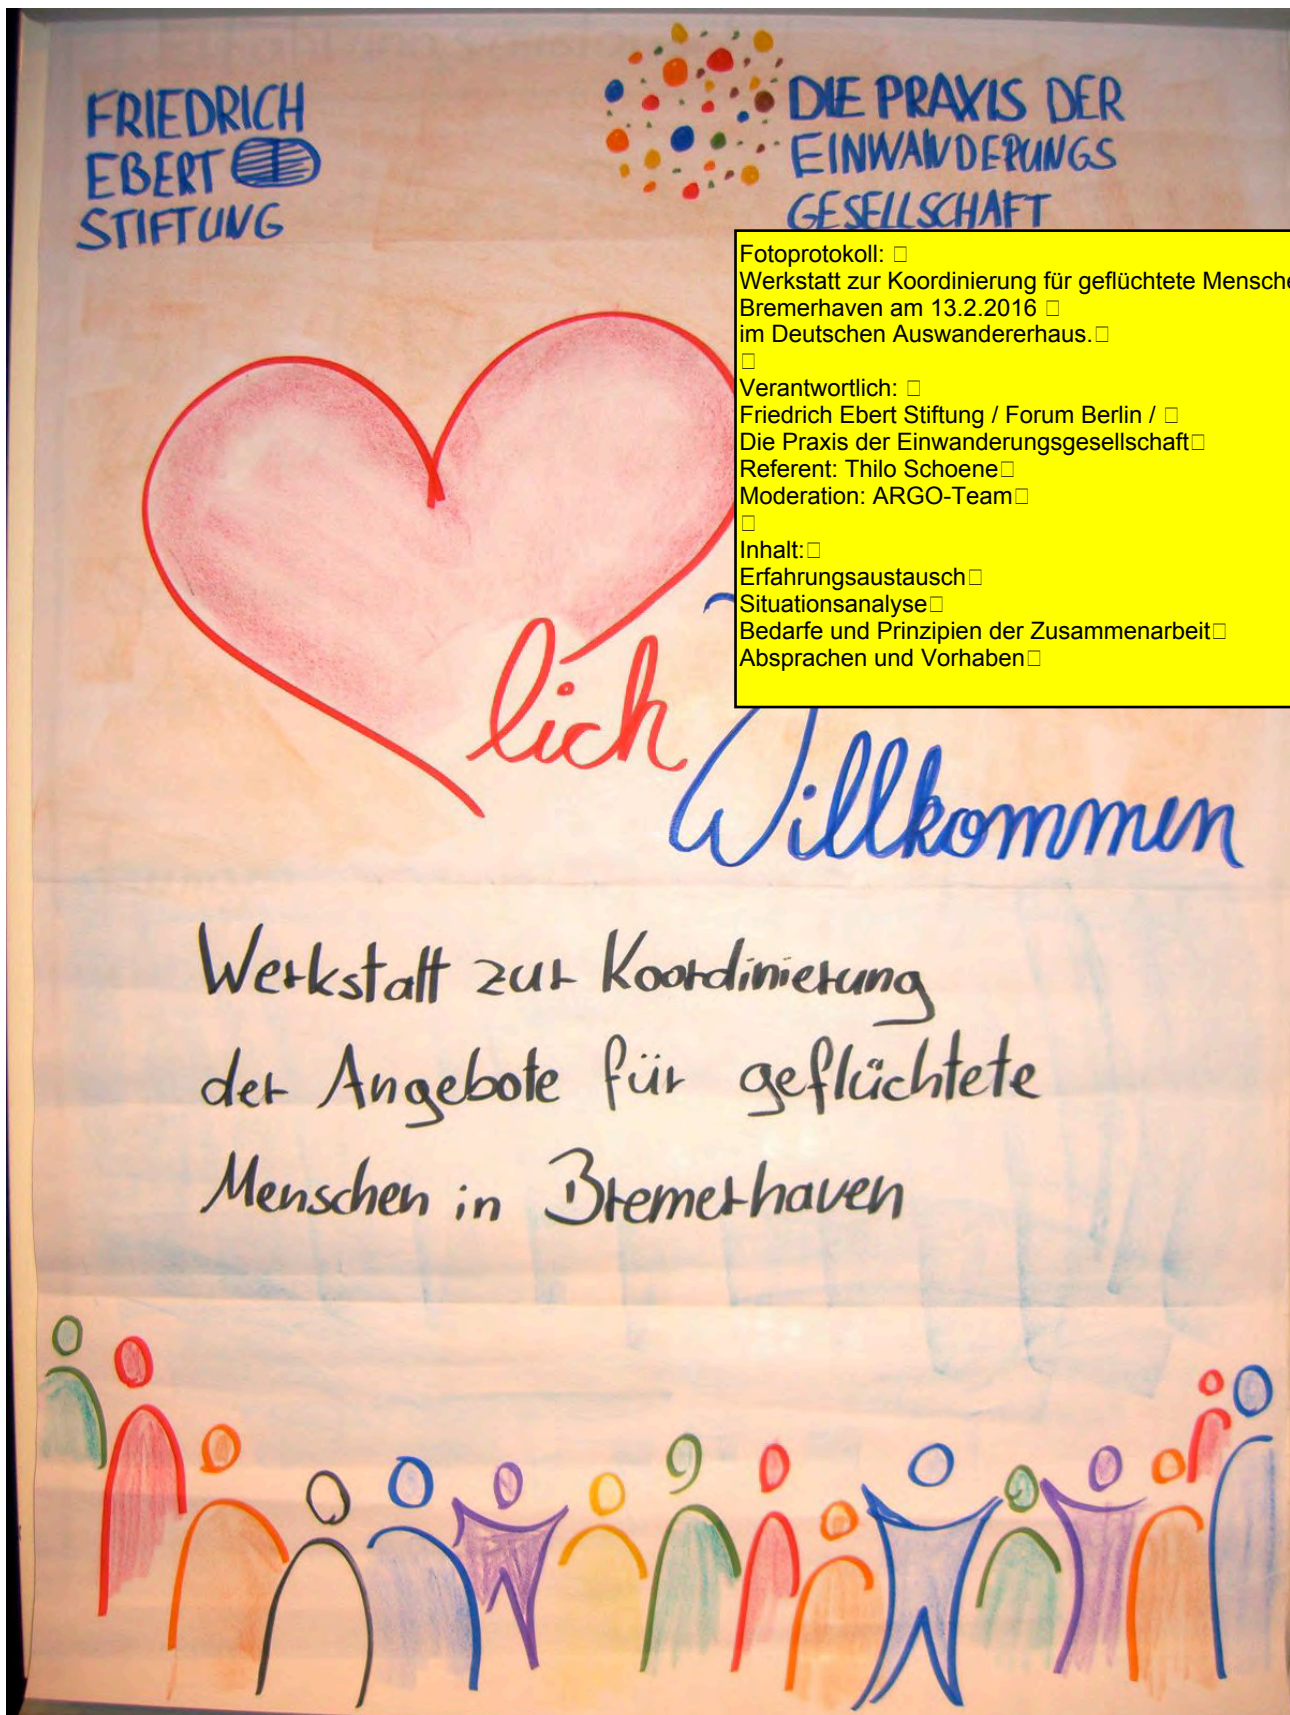 FRIEDRICH
EBERT
STIFTUNG
DIE PRAXIS DER
EINWANDERUNGS
GESELLSCHAFT
Fotoprotokoll:
Werkstatt zur Koordinierung für geflüchtete
Bremerhaven am 13.2.2016
im Deutschen Auswandererhaus.
Verantwortlich:
Friedrich Ebert Stiftung / Forum Berlin /
Die Praxis der Einwanderungsgesellschaft
Referent: Thilo Schoene
Moderation: ARGO-Team
Inhalt:
Erfahrungsaustausch
Situationsanalyse
Bedarfe und Prinzipien der Zusammenarbeit
Absprachen und Vorhaben
lich
Willkommen
Werkstatt zur Koordinierung
der Angebote für geflüchtete
Menschen in Bremerhaven